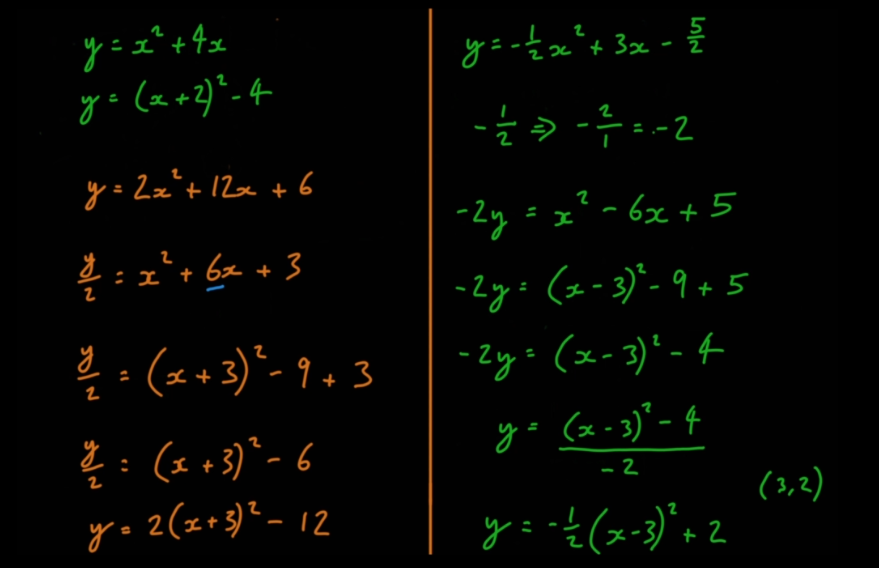 y = x² + 4x
y = (x + 2)² - 4
y = 2x² + 12x + 6
y/2 = x² + 6x + 3
y/2 = (x + 3)² - 9 + 3
y/2 = (x + 3)² - 6
y = 2(x + 3)² - 12
y = -1/2 x² + 3x - 5/2
-1/2 ⇒ -2/1 = -2
-2y = x² - 6x + 5
-2y = (x - 3)² - 9 + 5
-2y = (x - 3)² - 4
y = ((x - 3)² - 4)/-2
(3, 2)
y = -1/2 (x - 3)² + 2